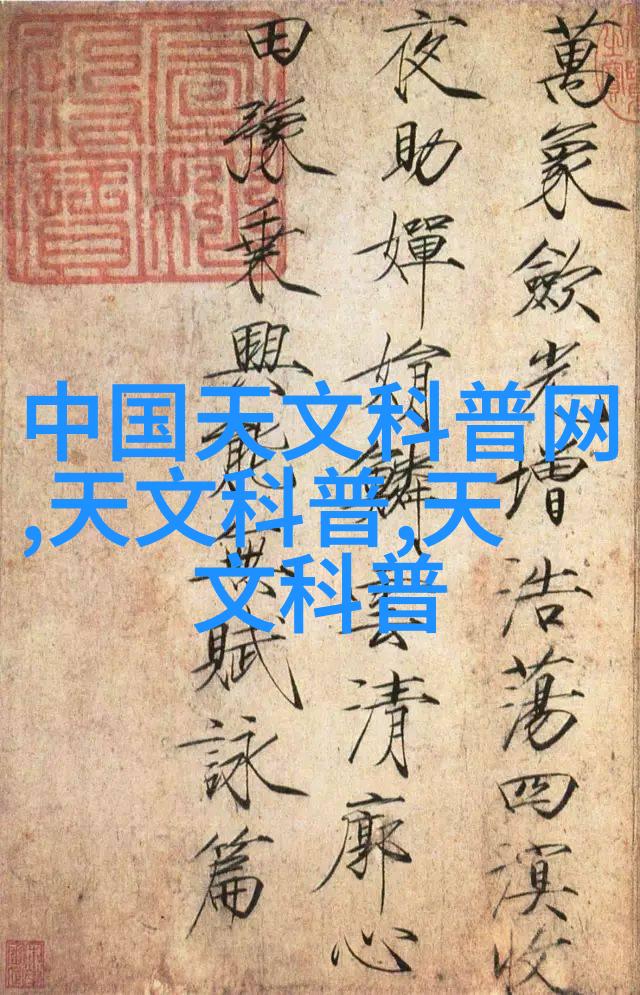 萬象歛光增浩蕩四溟收
夜助嬋娟鱗雲清廓心
田豫乗興能無賦詠篇
中国天文科普网
,天文科普,天
文科普